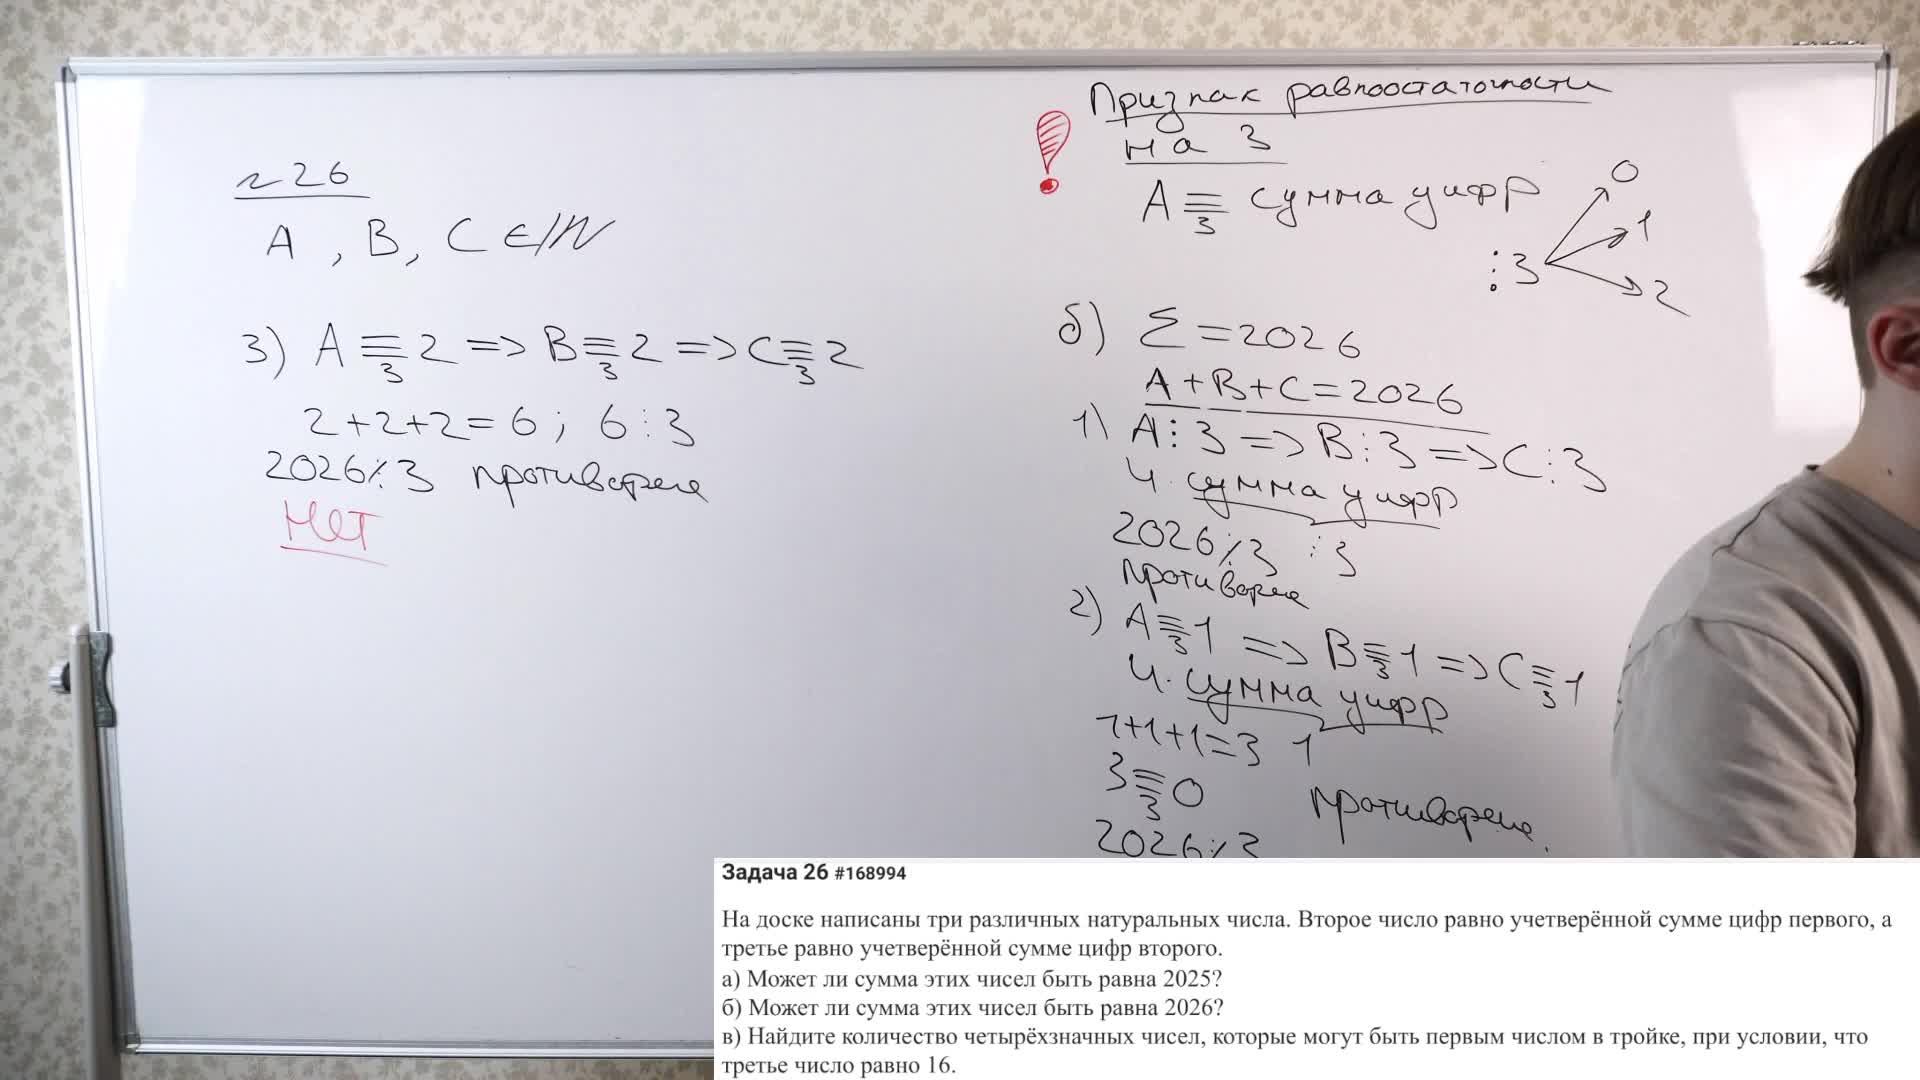 №26
A , B, C ∈ ℕ
3) A ≡₃ 2 => B ≡₃ 2 => C ≡₃ 2
2+2+2=6 ; 6⋮3
2026 ⋮̸ 3 противореч
Нет
Признак равноостаточности
на 3
!
A ≡₃ сумма цифр
⋮3
0
1
2
б) Σ = 2026
A+B+C=2026
1) A⋮3 => B⋮3 => C⋮3
4·сумма цифр
2026 ⋮̸ 3 ⋮3
противореч
2) A ≡₃ 1 => B ≡₃ 1 => C ≡₃ 1
4·сумма цифр
1+1+1=3 1
3 ≡₃ 0
противореч.
2026 ⋮̸ 3
Задача 26 #168994
На доске написаны три различных натуральных числа. Второе число равно учетверённой сумме цифр первого, а
третье равно учетверённой сумме цифр второго.
а) Может ли сумма этих чисел быть равна 2025?
б) Может ли сумма этих чисел быть равна 2026?
в) Найдите количество четырёхзначных чисел, которые могут быть первым числом в тройке, при условии, что
третье число равно 16.